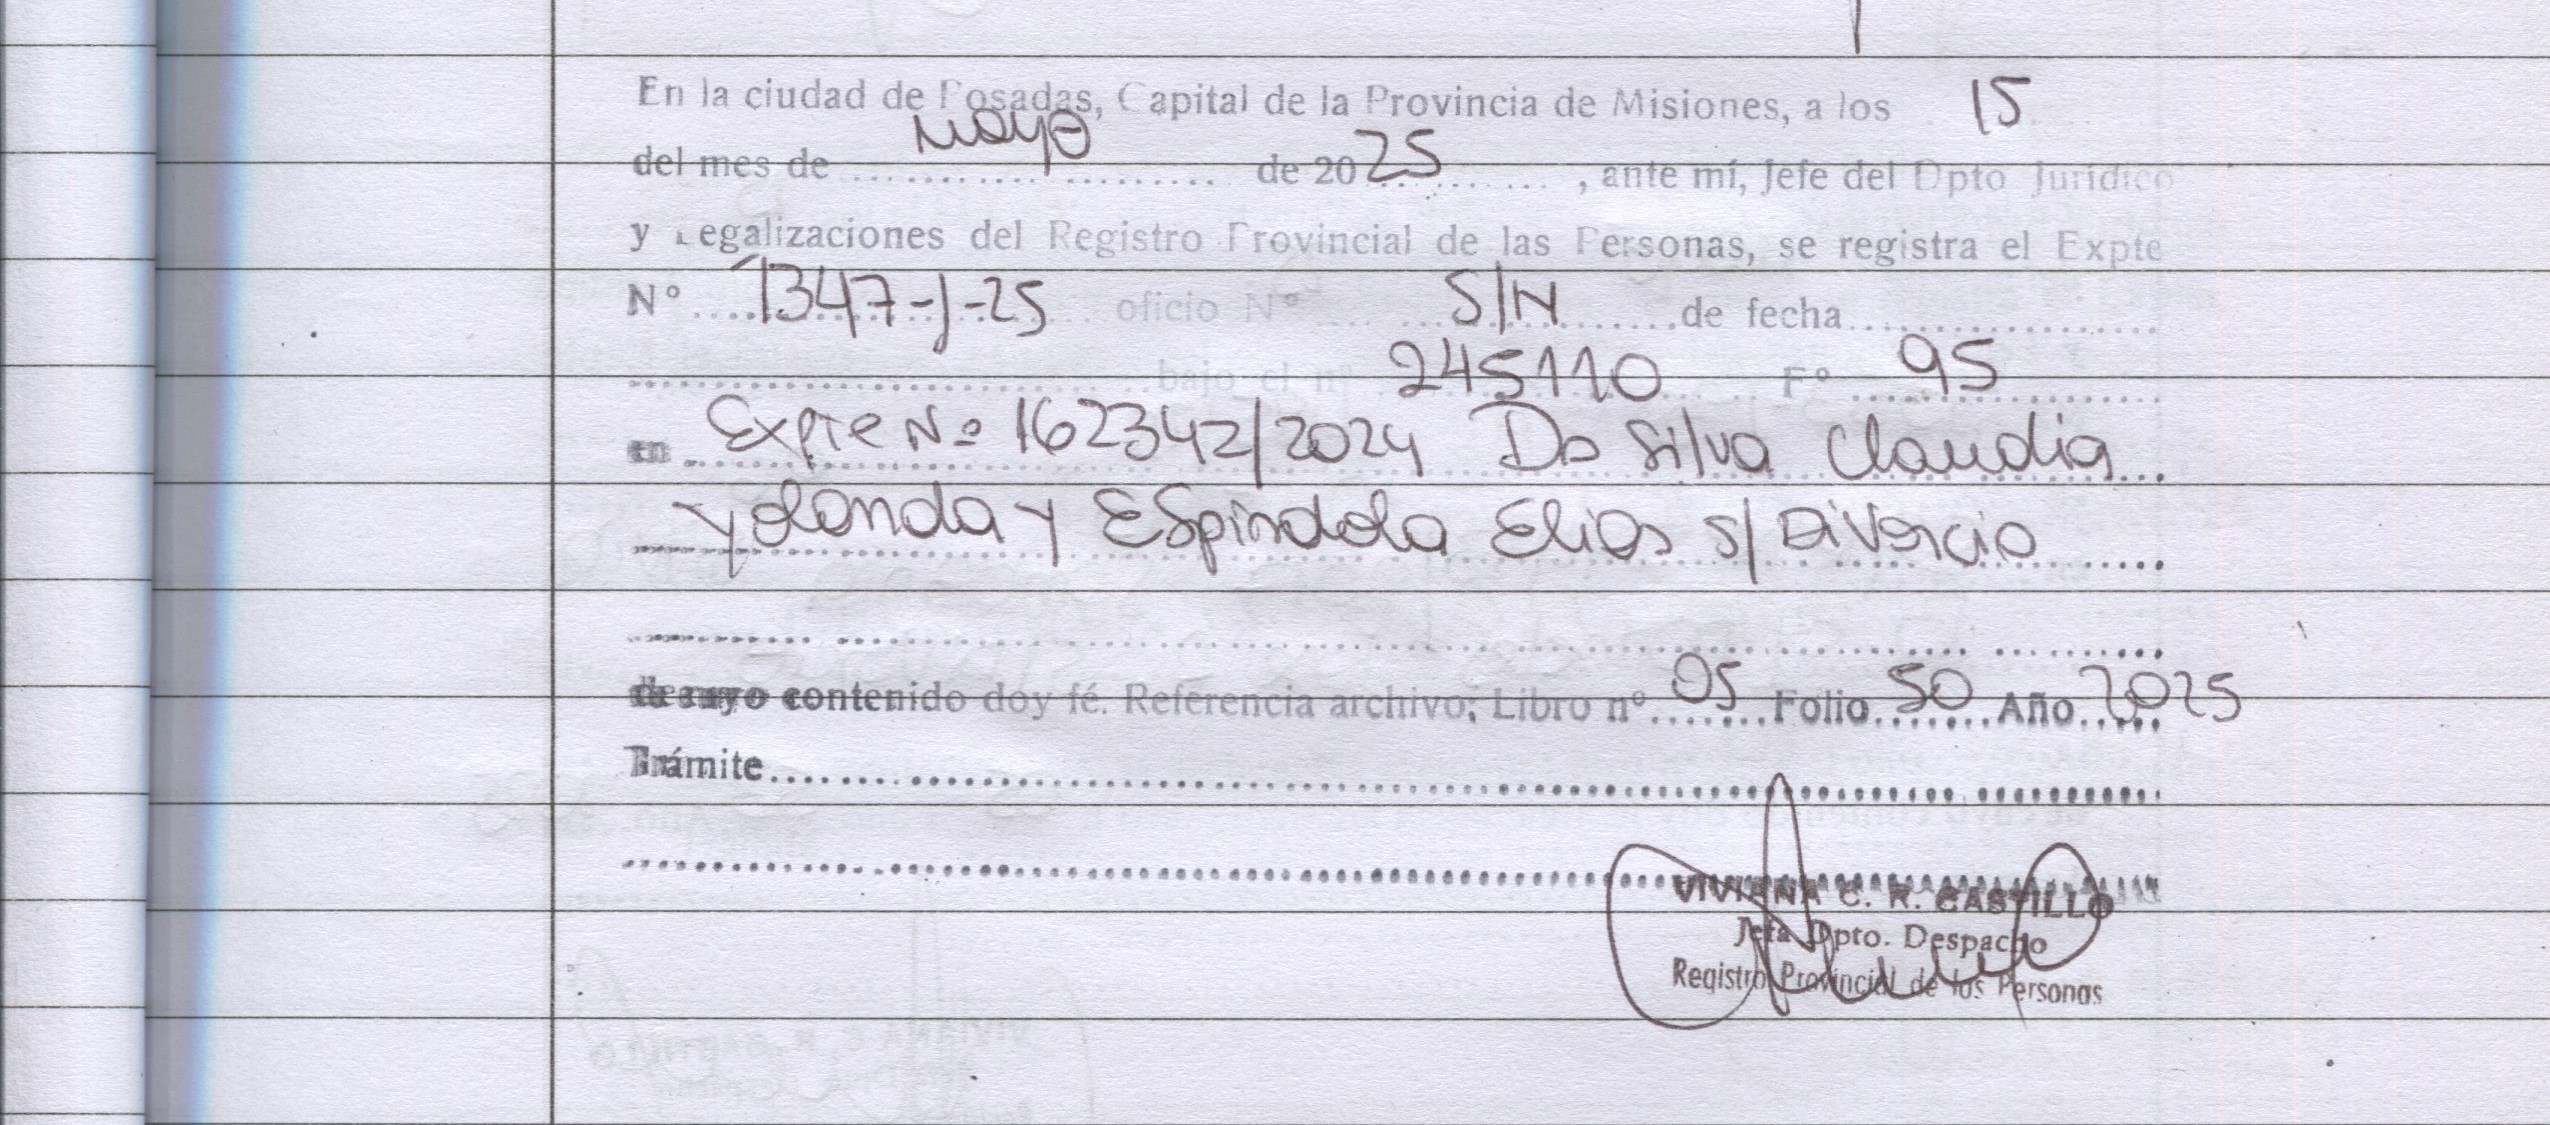 En la ciudad de Posadas, Capital de la Provincia de Misiones, a los 15
del mes de mayo de 2025, ante mí, Jefe del Dpto Jurídico
y Legalizaciones del Registro Provincial de las Personas, se registra el Expte
N° 1347-J-25 oficio N° S/N de fecha
bajo el n° 245110 F° 95
en Expte Nº 162342/2024 Da Silva Claudia
Yolanda y Espindola Elias s/ Divorcio
de cuyo contenido doy fé. Referencia archivo; Libro n° 05 Folio 50 Año 2025
Trámite
VIVIANA C. R. CASTILLO
Jefa Dpto. Despacho
Registro Provincial de las Personas